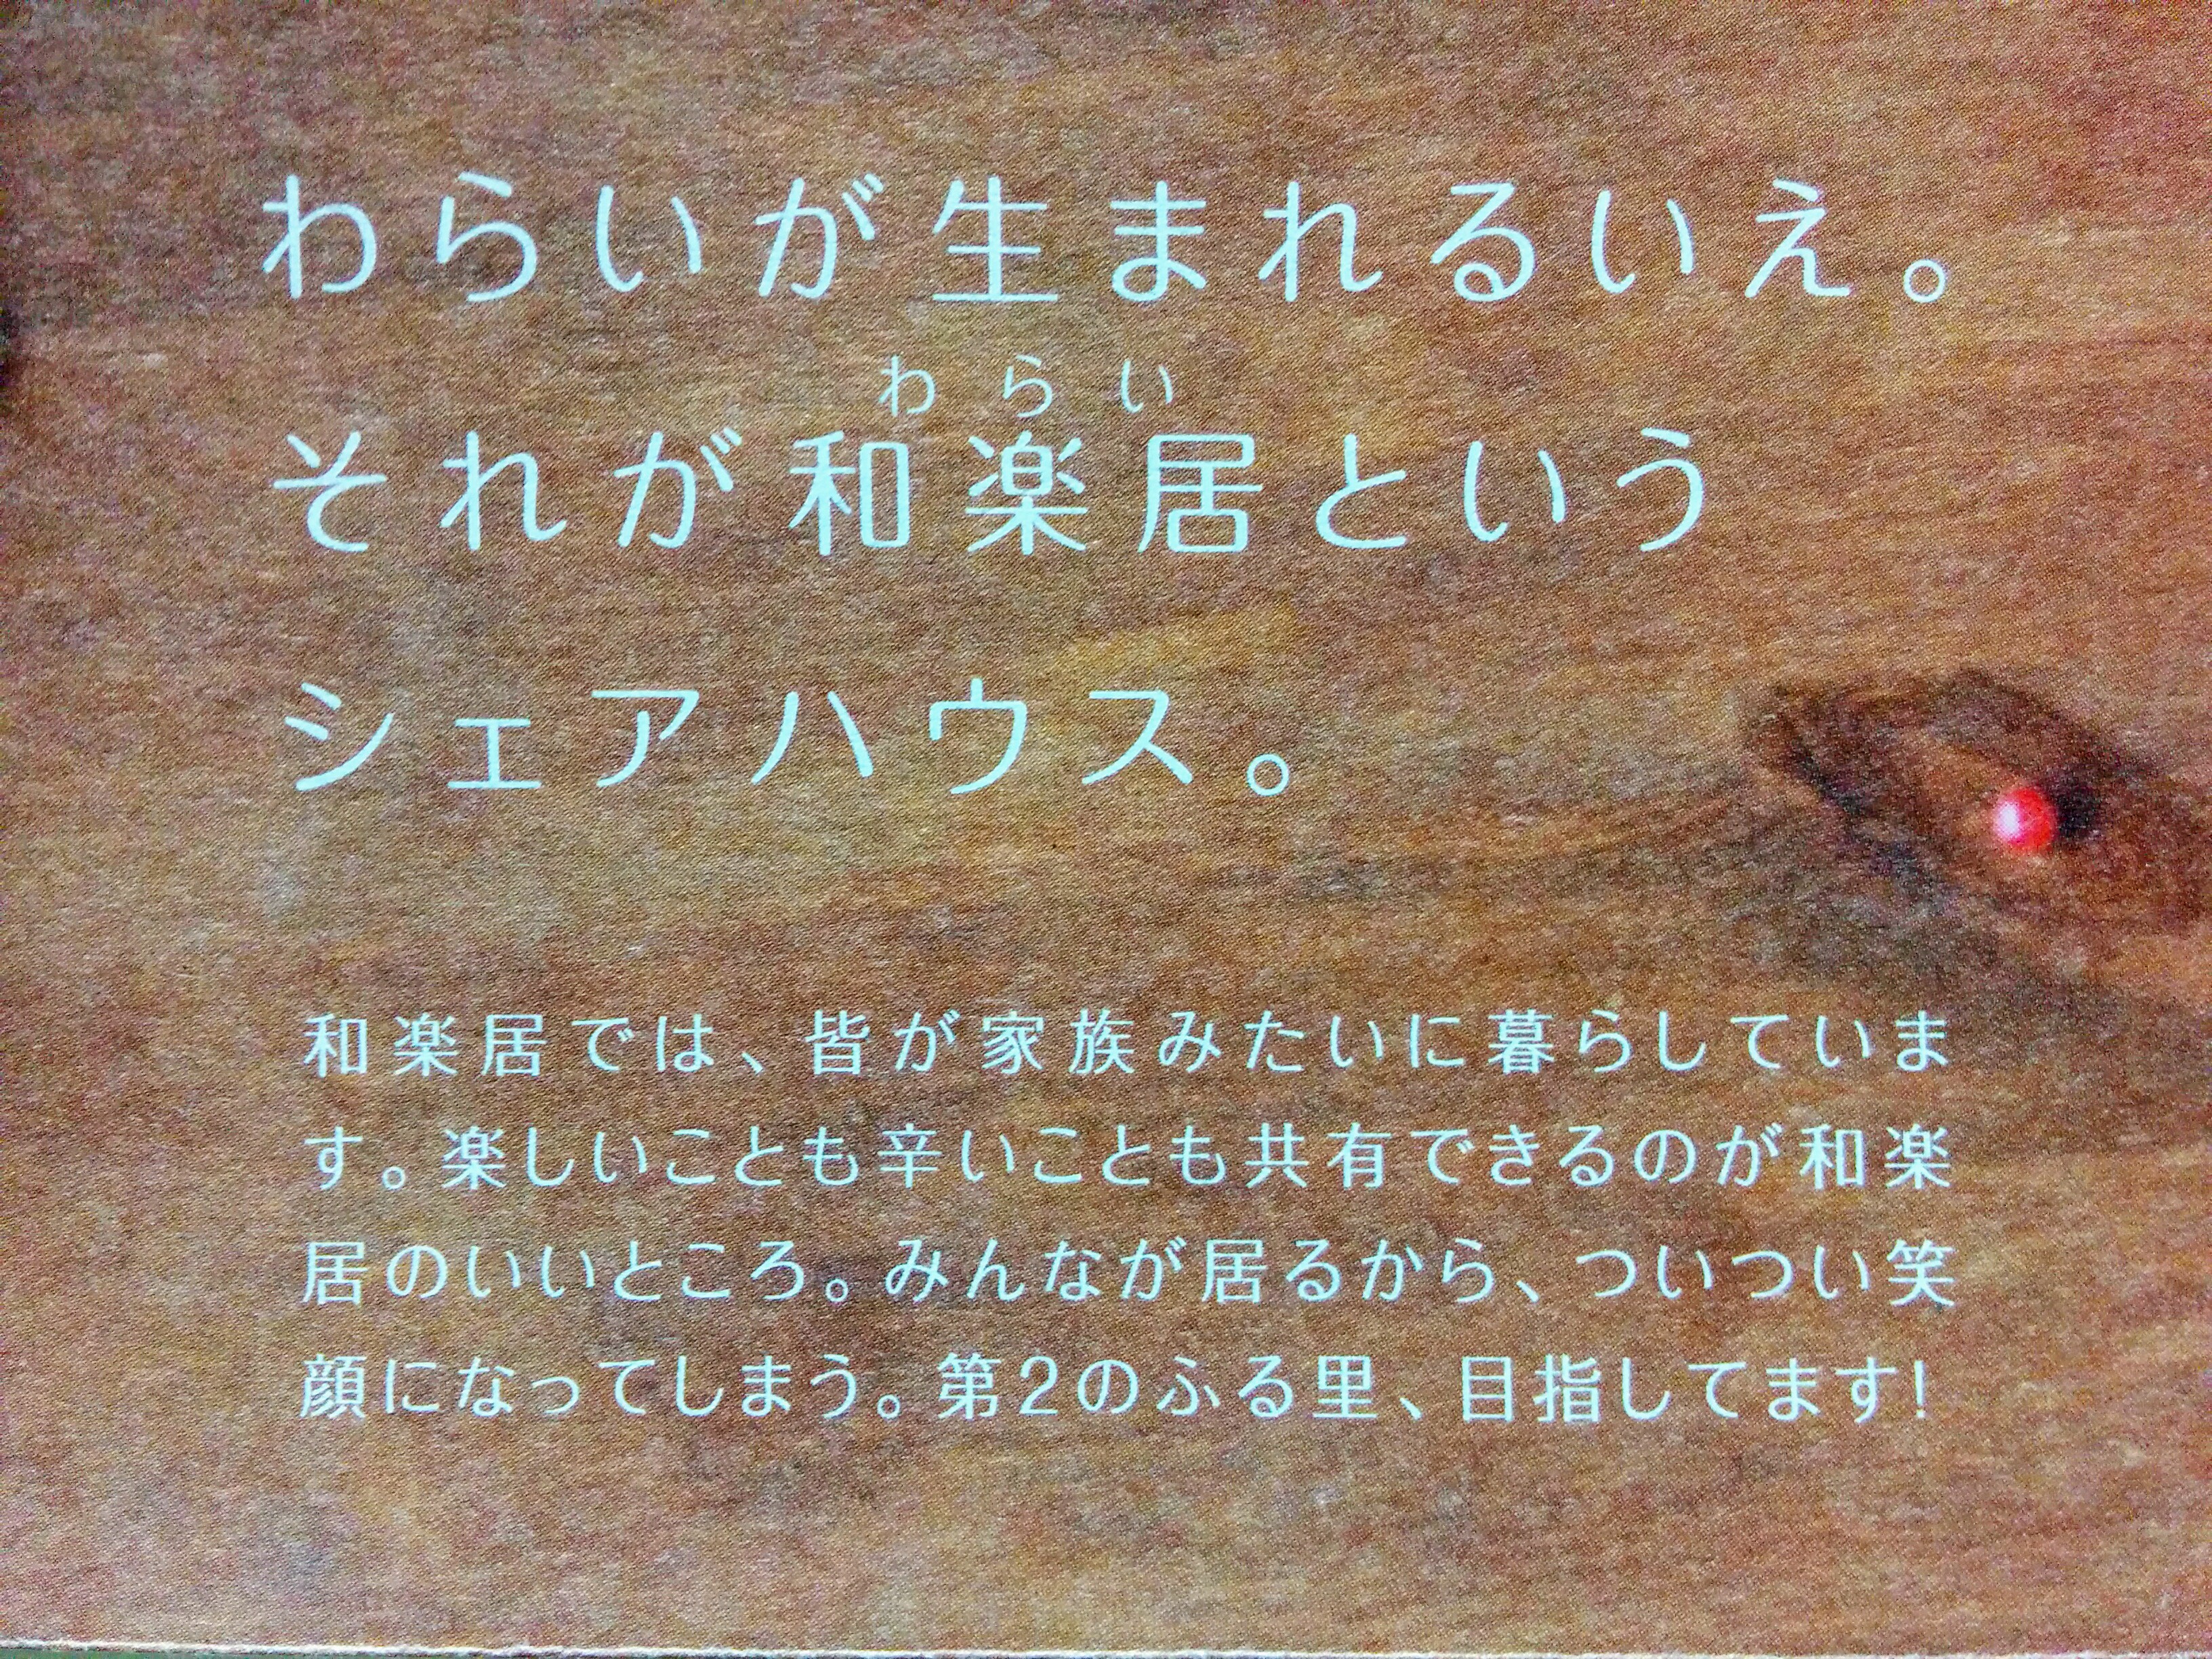 わらいが生まれるいえ。
わらい
それが和楽居という
シェアハウス。
和楽居では、皆が家族みたいに暮らしていま
す。楽しいことも辛いことも共有できるのが和楽
居のいいところ。みんなが居るから、ついつい笑
顔になってしまう。第2のふる里、目指してます!